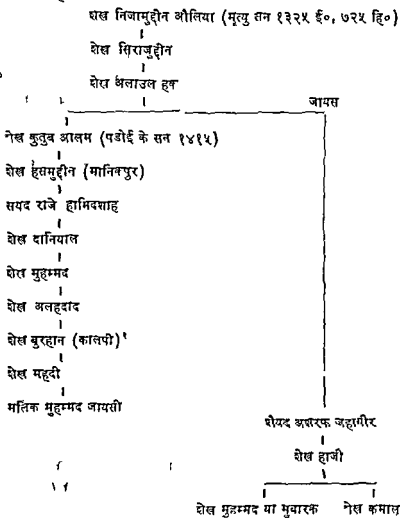 शेख निजामुद्दीन औलिया (मृत्यु सन १३२५ ई०, ७२५ हि०)
शेख सिराजुद्दीन
शेख अलाउल हक
जायस
शेख कुतुब आलम (पडोई के सन १४१५)
शेख हसमुद्दीन (मानिकपुर)
सयद राजे हामिदशाह
शेख दानियाल
शेख मुहम्मद
शेख अलहदाद
शेख बुरहान (कालपी)¹
शेख महदी
मलिक मुहम्मद जायसी
शैयद अशरफ जहागीर
शेख हाजी
शेख मुहम्मद या मुबारक शेख कमाल